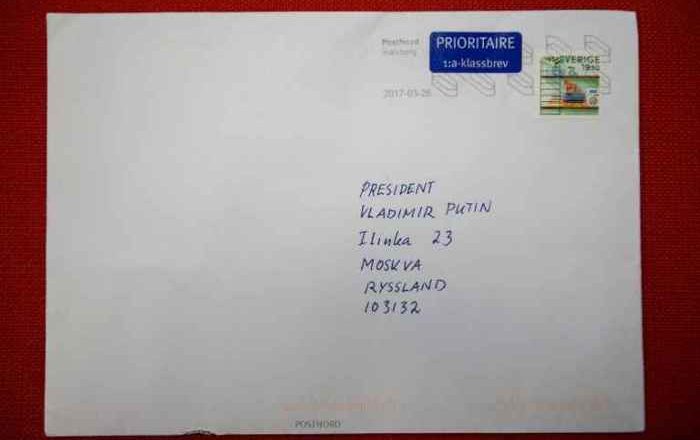 PostNord
PRIORITAIRE
1:a-klassbrev
SVERIGE
PRESIDENT
VLADIMIR PUTIN
Ilinka 23
MOSKVA
RYSSLAND
103132
POSTNORD